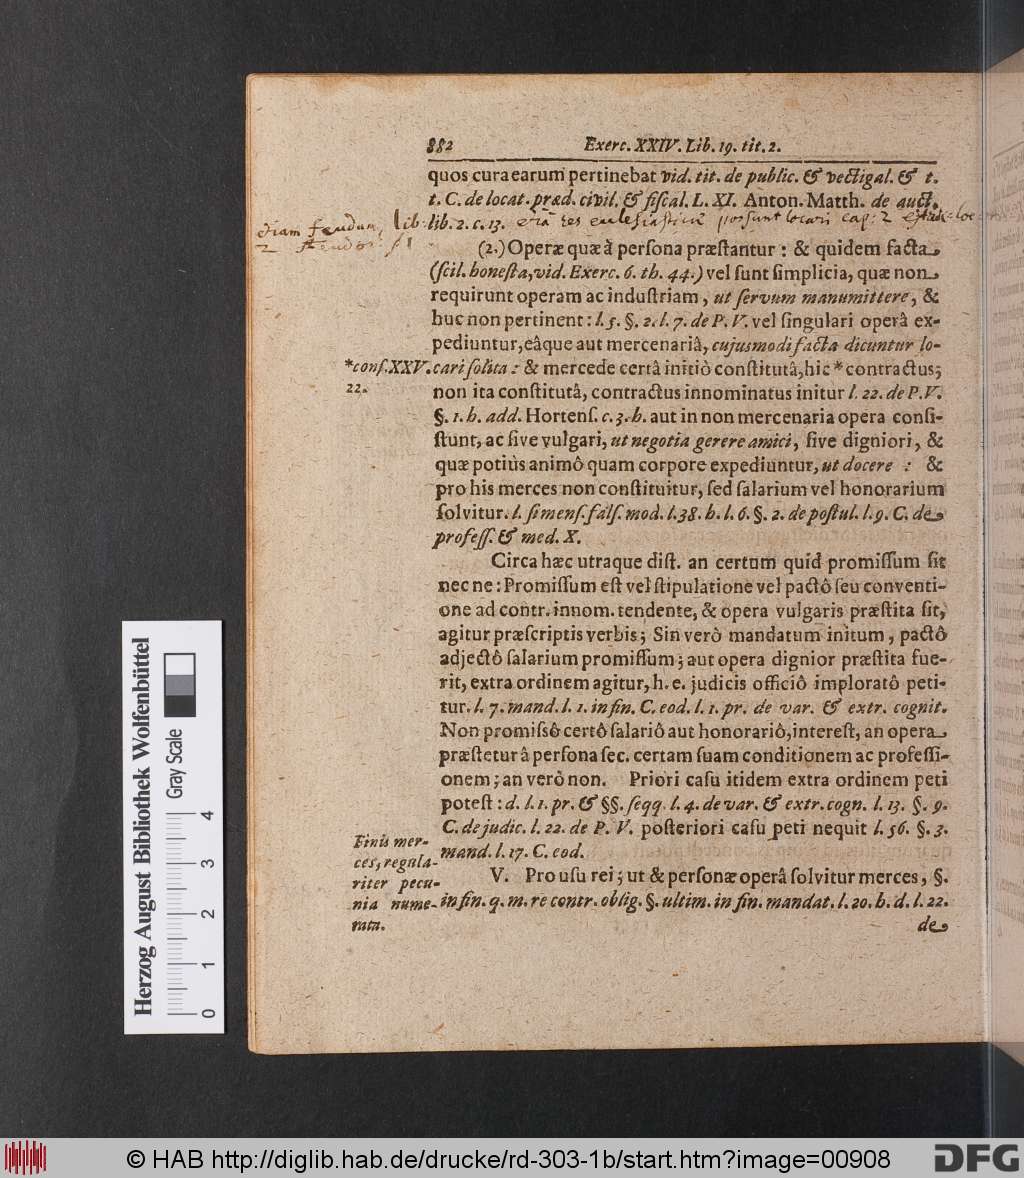 882 Exerc. XXIV. Lib. 19. tit. 2.
quos cura earum pertinebat vid. tit. de public. & vectigal. & t.
t. C. de locat. præd. civil. & fiscal. L. XI. Anton. Matth. de auct.
lib. 2. c. 13. etiã res possunt locari cap: 2
etiam feudum, lib:
2 feudor
(2.) Operæ quæ à persona præstantur: & quidem facta
(scil. honesta, vid. Exerc. 6. th. 44.) vel sunt simplicia, quæ non
requirunt operam ac industriam, ut servum manumittere, &
huc non pertinent: l. 5. §. 2. l. 7. de P. V. vel singulari operâ ex-
pediuntur, eâque aut mercenariâ, cujusmodi facta dicuntur lo-
*conf. XXV. cari solita: & mercede certâ initiô constitutâ, hic * contractus;
22. non ita constitutâ, contractus innominatus initur l. 22. de P. V.
§. 1. h. add. Hortens. c. 3. h. aut in non mercenaria opera consi-
stunt, ac sive vulgari, ut negotia gerere amici, sive digniori, &
quæ potiùs animô quam corpore expediuntur, ut docere : &
pro his merces non constituitur, sed salarium vel honorarium
solvitur. l. si mens. fals. mod. l. 38. h. l. 6. §. 2. de postul. l. 9. C. de
profess. & med. X.
Circa hæc utraque dist. an certum quid promissum sit
nec ne: Promissum est vel stipulatione vel pactô seu conventi-
one ad contr. innom. tendente, & opera vulgaris præstita sit,
agitur præscriptis verbis; Sin verò mandatum initum, pactô
adjectô salarium promissum; aut opera dignior præstita fue-
rit, extra ordinem agitur, h. e. judicis officiô imploratô peti-
tur. l. 7. mand. l. 1. in fin. C. eod. l. 1. pr. de var. & extr. cognit.
Non promissô certô salariô aut honorariô, interest, an opera
præstetur à persona sec. certam suam conditionem ac professi-
onem; an verò non. Priori casu itidem extra ordinem peti
potest: d. l. 1. pr. & §§. seqq. l. 4. de var. & extr. cogn. l. 13. §. 9.
C. de judic. l. 22. de P. V. posteriori casu peti nequit l. 56. §. 3.
mand. l. 17. C. eod.
Finis mer-
ces, regula-
riter pecu-
nia nume-
rata.
V. Pro usu rei; ut & personæ operâ solvitur merces, §.
in fin. q. m. re contr. oblig. §. ultim. in fin. mandat. l. 20. h. d. l. 22.
de
Herzog August Bibliothek Wolfenbüttel
Gray Scale
0 1 2 3 4
© HAB http://diglib.hab.de/drucke/rd-303-1b/start.htm?image=00908
DFG